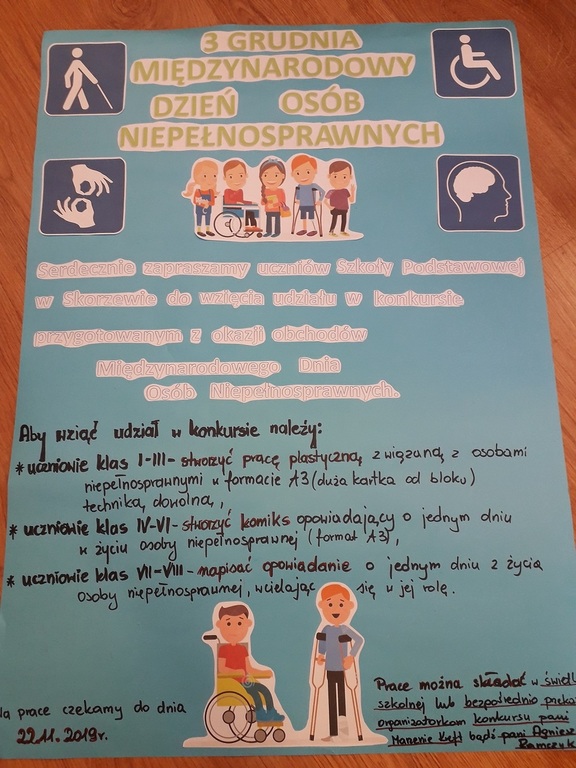 3 GRUDNIA
MIĘDZYNARODOWY
DZIEŃ OSÓB
NIEPEŁNOSPRAWNYCH
Serdecznie zapraszamy uczniów Szkoły Podstawowej
w Skorzewie do wzięcia udziału w konkursie
przygotowanym z okazji obchodów
Międzynarodowego Dnia
Osób Niepełnosprawnych.
Aby wziąć udział w konkursie należy:
* uczniowie klas I-III - stworzyć pracę plastyczną, związaną z osobami
niepełnosprawnymi w formacie A3 (duża kartka od bloku)
techniką dowolną,,
* uczniowie klas IV-VI - stworzyć komiks opowiadający o jednym dniu
w życiu osoby niepełnosprawnej (format A3),
* uczniowie klas VII-VIII - napisać opowiadanie o jednym dniu z życia
osoby niepełnosprawnej, wcielając się w jej rolę.
Na prace czekamy do dnia
22.11.2019r.
Prace można składać w świetl
szkolnej lub bezpośrednio przeka
organizatorkom konkursu pani
Marzenie Kreft bądź pani Agniesz
Ramczyk